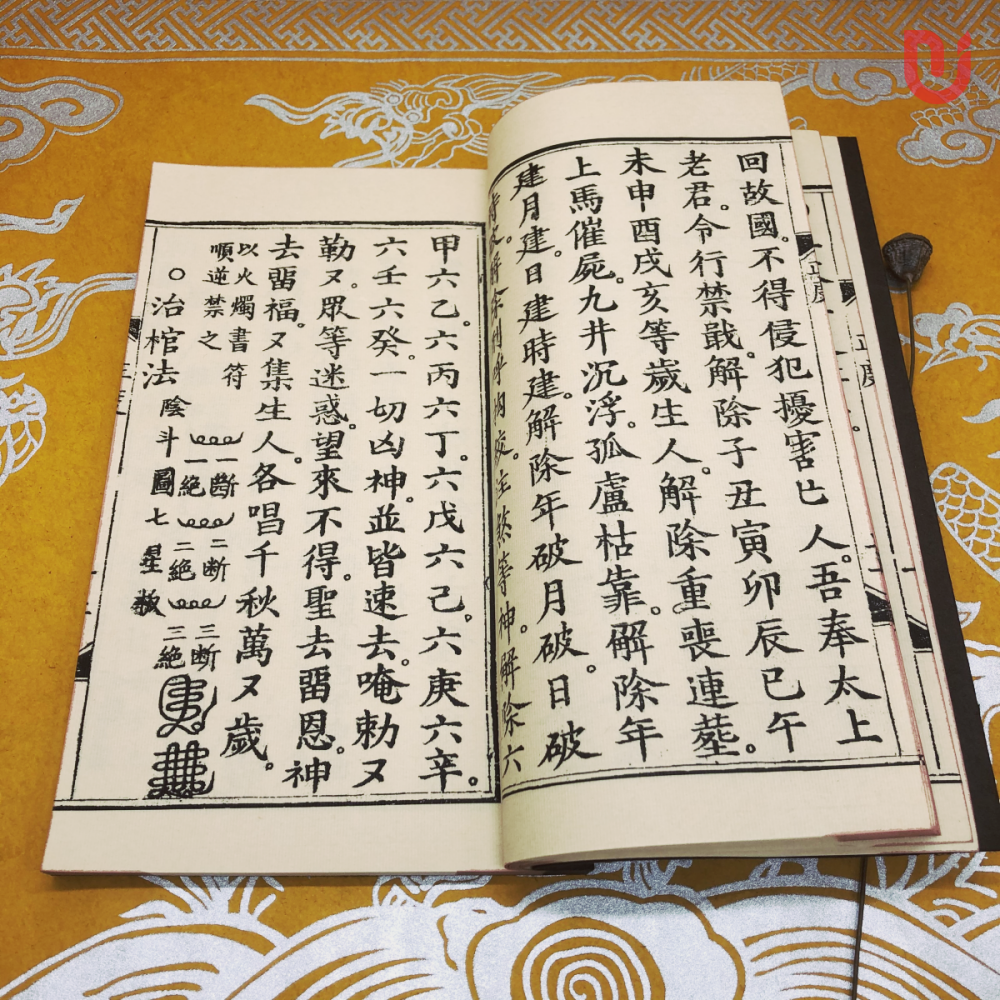 回故國。不得侵犯擾害亡人。吾奉太上
老君。令行禁戢。解除子丑寅卯辰巳午
未申酉戌亥等歲生人。解除重喪連塟。
上馬催屍。九井沉浮。孤盧枯靠。解除年
建月建。日建時建。解除年破月破。日破
神。解除六
甲六乙。六丙六丁。六戊六己。六庚六辛。
六壬六癸。一切凶神。並皆速去。唵勅又
勒又。眾等迷惑。望來不得。聖去畱恩。神
去畱福。又集生人。各唱千秋萬又歲。
以火燭書符
順逆禁之
一断 二断 三断
一絕 二絕 三絕
○治棺法 陰斗圖七星